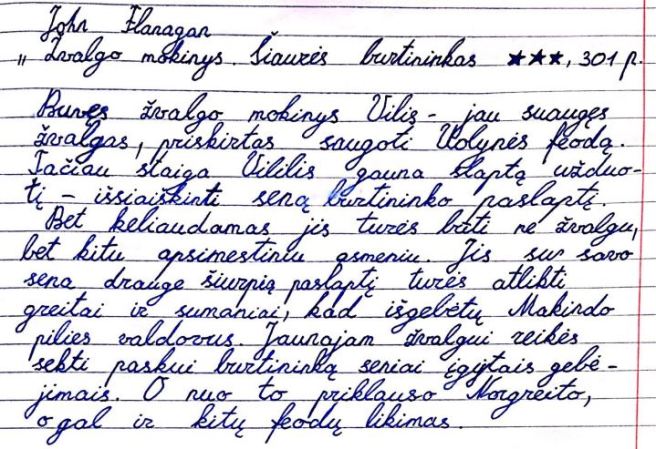 John Flanagan
„ Žvalgo mokinys. Šiaurės burtininkas ★★★, 301 p.
Buvęs žvalgo mokinys Vilis - jau suaugęs
žvalgas, priskirtas saugoti Uolynės feodą.
Tačiau staiga Vililis gauna slaptą užduo-
tį - išsiaiškinti seną burtininko paslaptį.
Bet keliaudamas jis turės būti ne žvalgu,
bet kitu apsimestiniu asmeniu. Jis su savo
sena drauge šiurpią paslaptį turės atlikti
greitai ir sumaniai, kad išgebėtų Makindo
pilies valdovus. Jaunajam žvalgui reikės
sekti paskui burtininką seniai įgytais gebė-
jimais. O nuo to priklauso Norgreito,
o gal ir kitų feodų likimas.